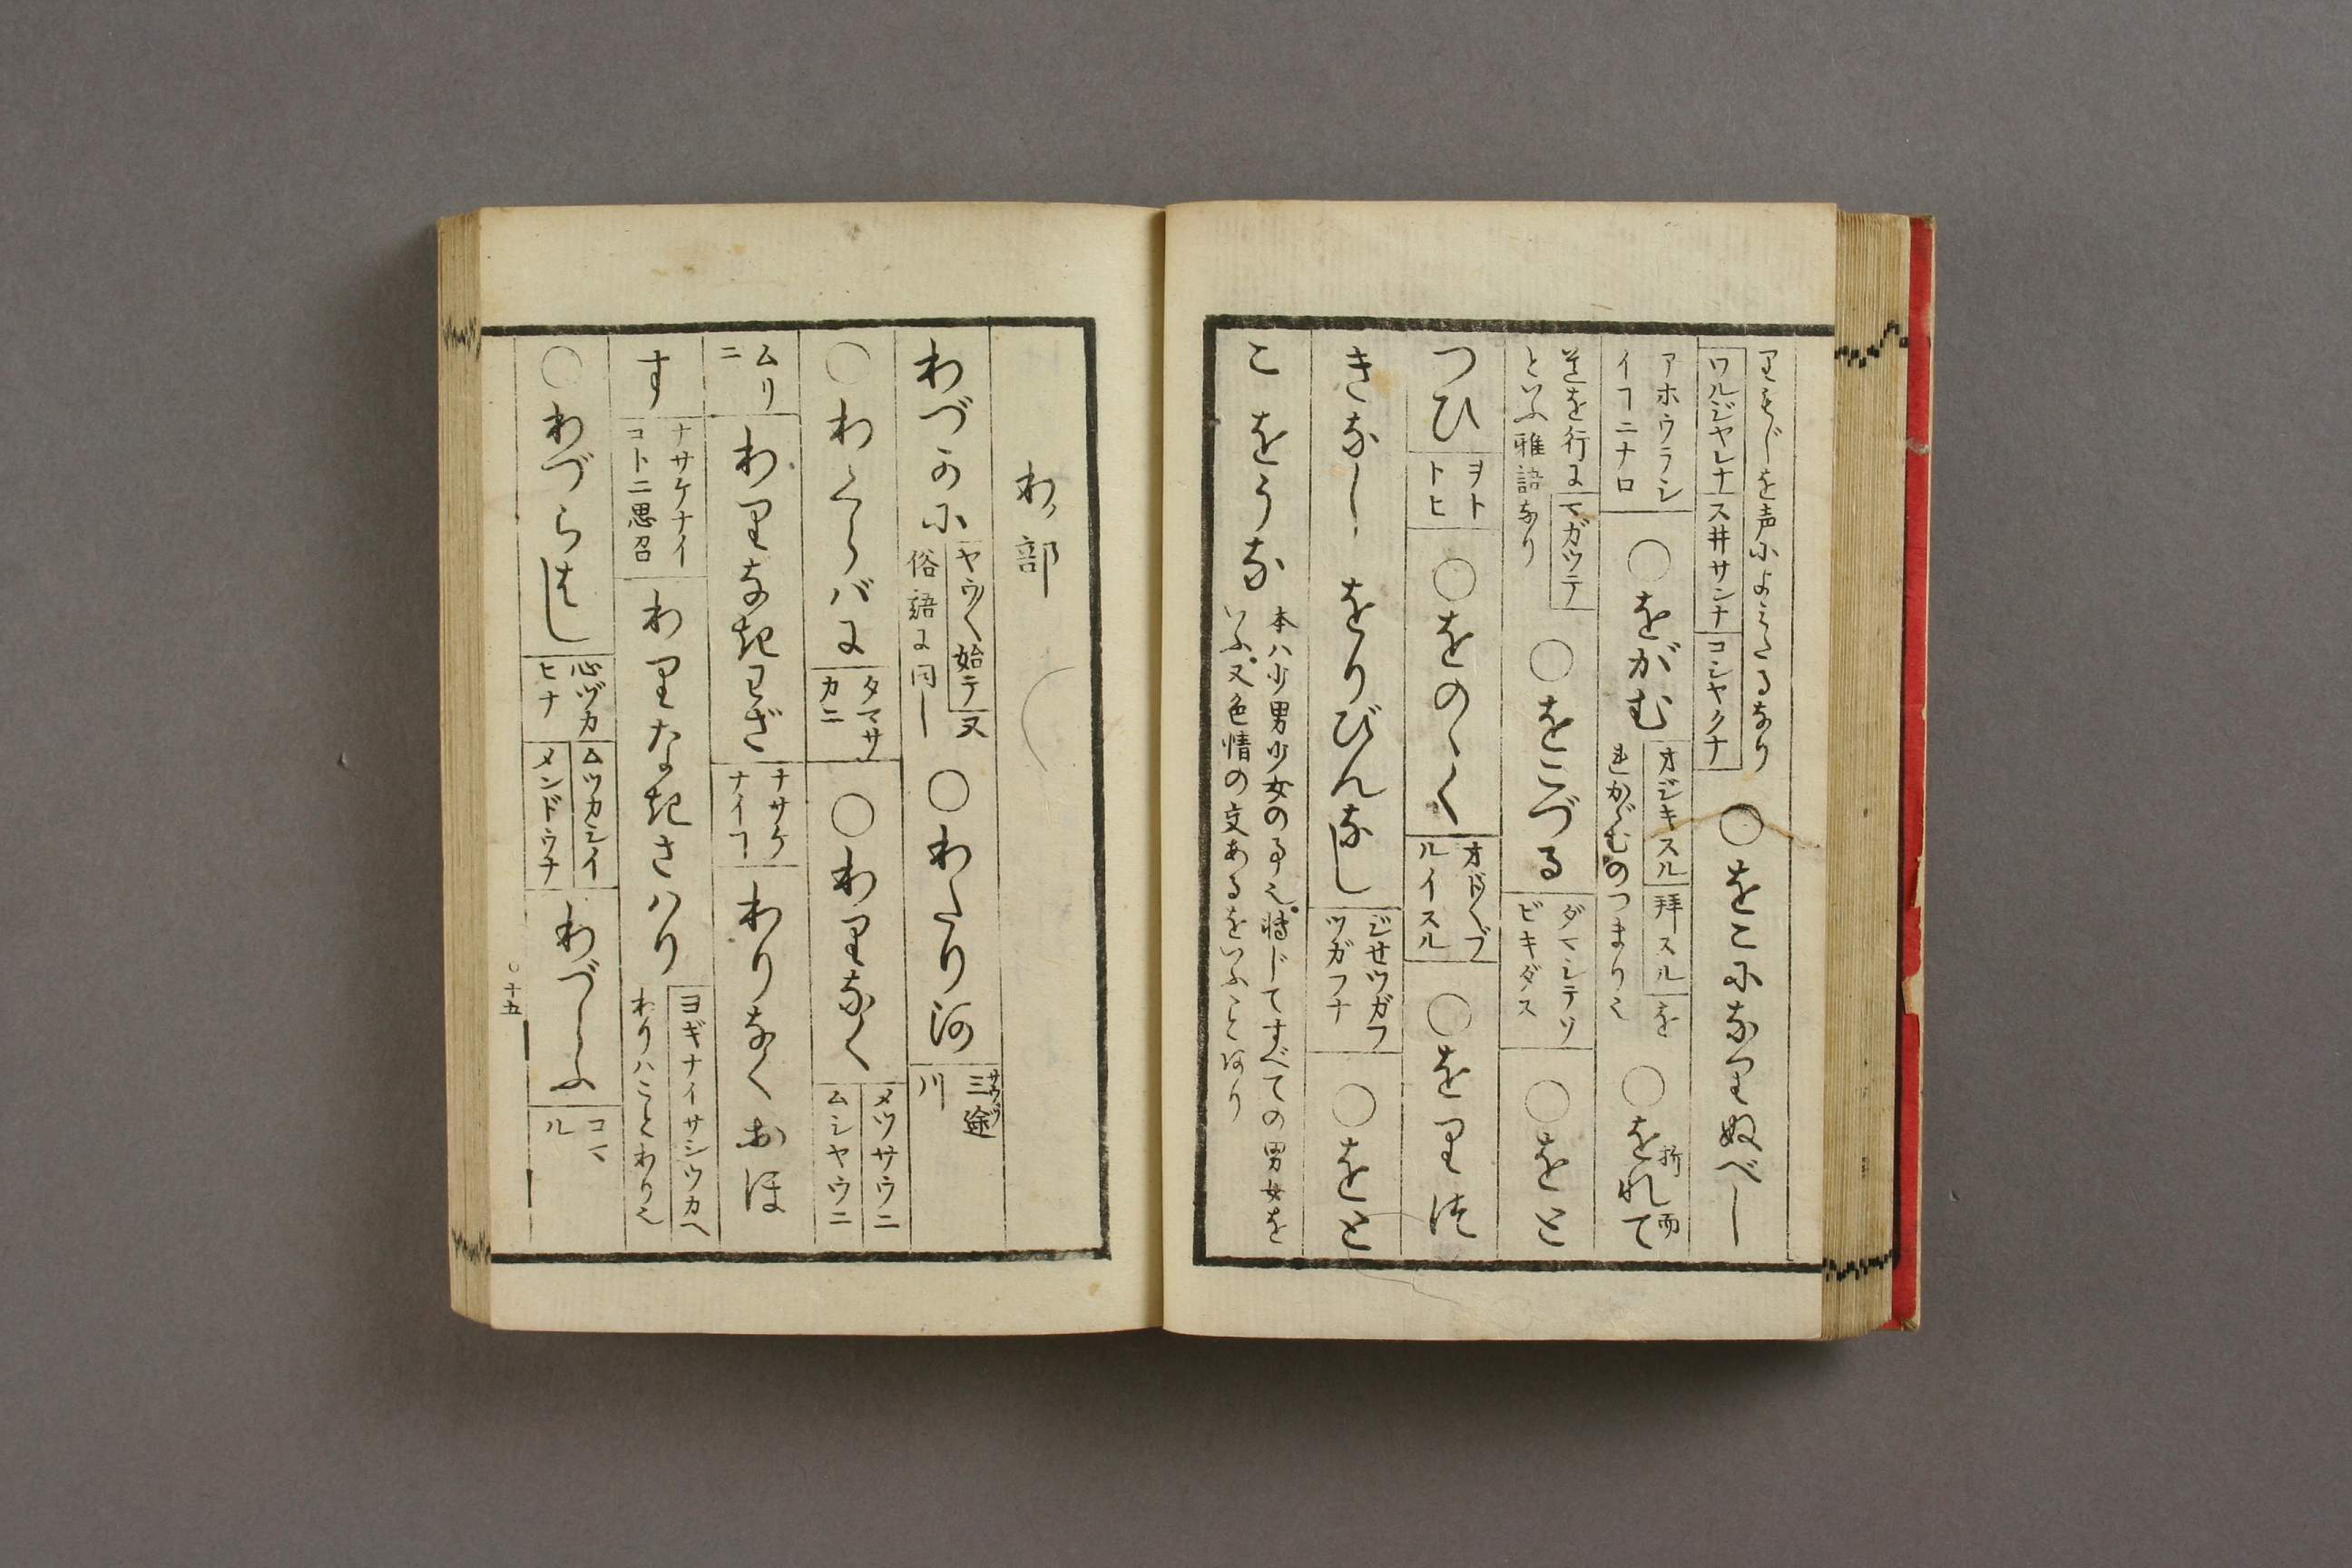 りもじを声によみたるなり
ワルジヤレナ スヰサンナ コシヤクナ
○をこになりぬべし
アホウラシ
イヿニナロ
○をがむ
オジキスル 拝スル を
れかゞむのつまり也
○をれて
折 而
道を行に マガツテ
といふ雅語なり
○をこづる
ダマシテソ
ビキダス
○をと
つひ
ヲト
トヒ
○をのゝく
オドヘブ
ルイスル
○をりは
きなし をりびんなし
ジセツガフ
ツガフナ
○をと
こをうな
本ハ少男少女の事也。転じてすべての男女を
いふ。又色情の交あるをいふことあり
わノ部
わづかに
ヤウ〳〵 始テ 又
俗語に同し
○わたり河
三途
サウヅ
川
○わくらバに
タマサ
カニ
○わりなく
メツサウニ
ムシヤウニ
ムリ
ニ
わりなきわざ
ナサケ
ナイヿ
わりなくおほ
す
ナサケナイ
コトニ思召
わりなきさハり
ヨギナイサシツカヘ
わりハことわり也
○わづらはし
心ヅカ
ヒナ
ムツカシイ
メンドウナ
わづらふ
コマ
ル
○十五